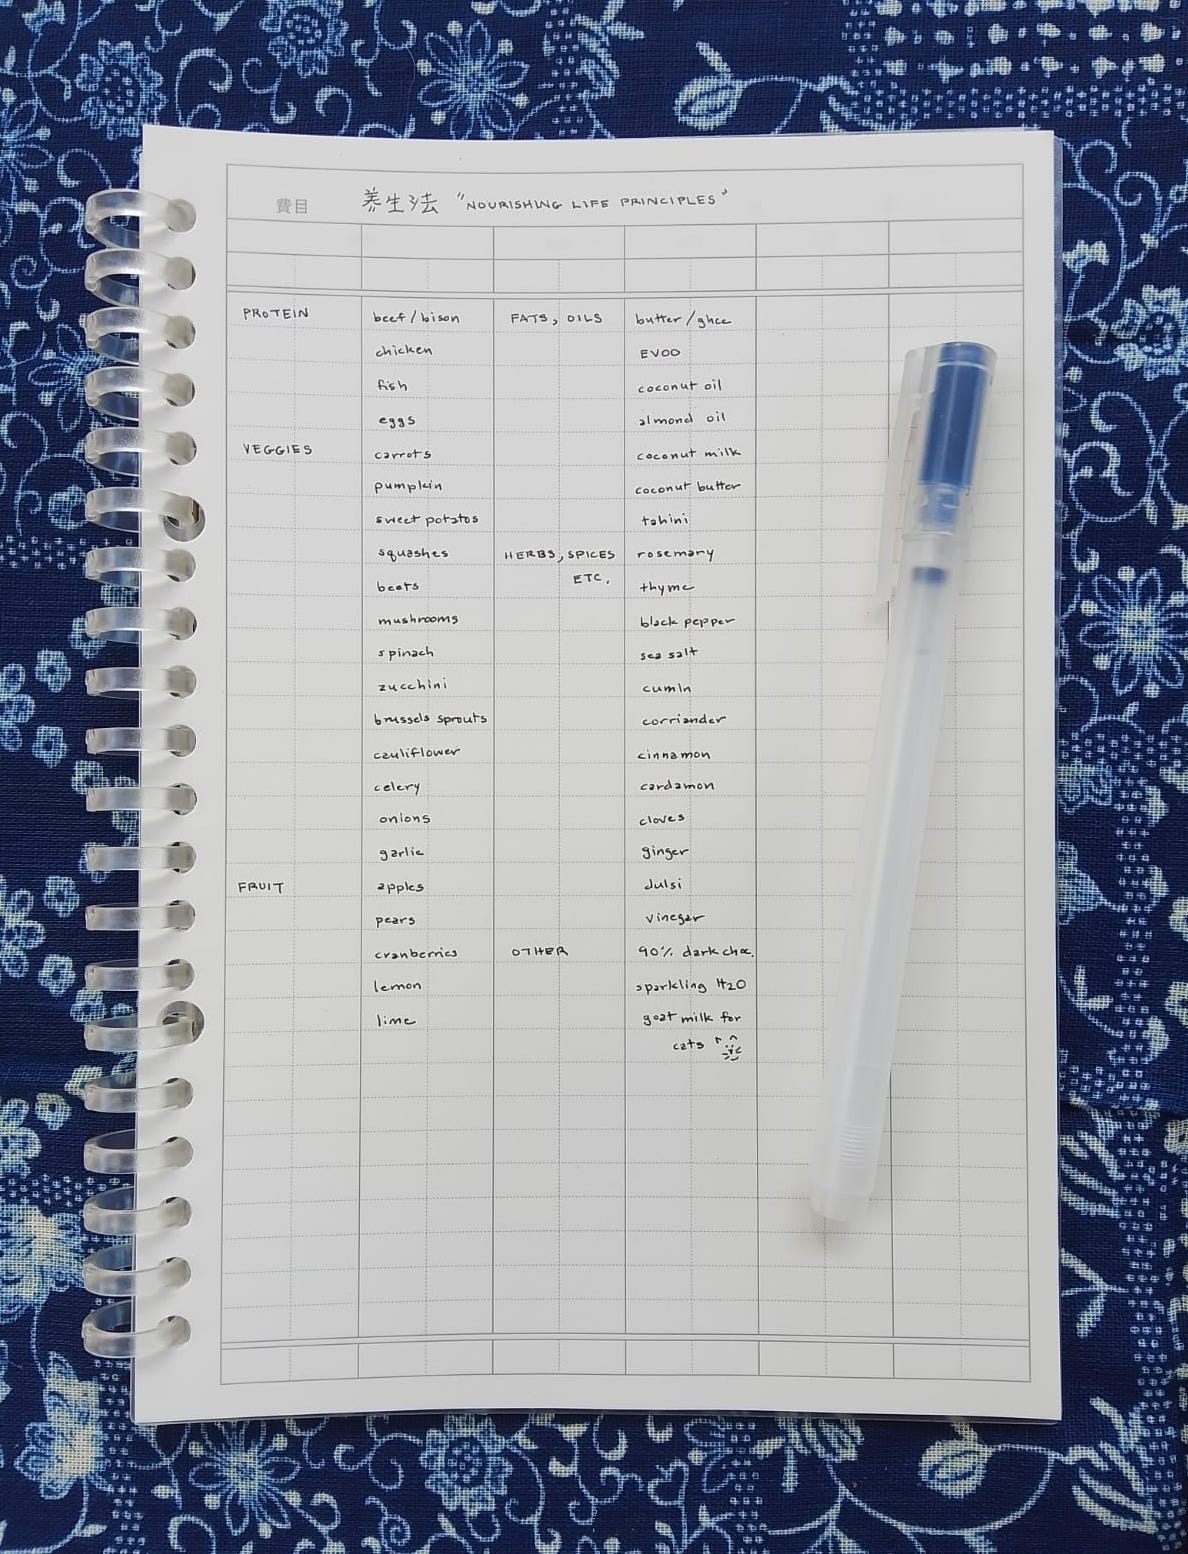 費目
养生法 "NOURISHING LIFE PRINCIPLES"
PROTEIN
beef/bison
chicken
fish
eggs
VEGGIES
carrots
pumpkin
sweet potatos
squashes
beets
mushrooms
spinach
zucchini
brussels sprouts
cauliflower
celery
onions
garlic
FRUIT
apples
pears
cranberries
lemon
lime
FATS, OILS
butter/ghee
EVOO
coconut oil
almond oil
coconut milk
coconut butter
tahini
HERBS, SPICES
ETC.
rosemary
thyme
black pepper
sea salt
cumin
corriander
cinnamon
cardamon
cloves
ginger
dulsi
vinegar
OTHER
90% dark choc.
sparkling H2O
goat milk for
cats